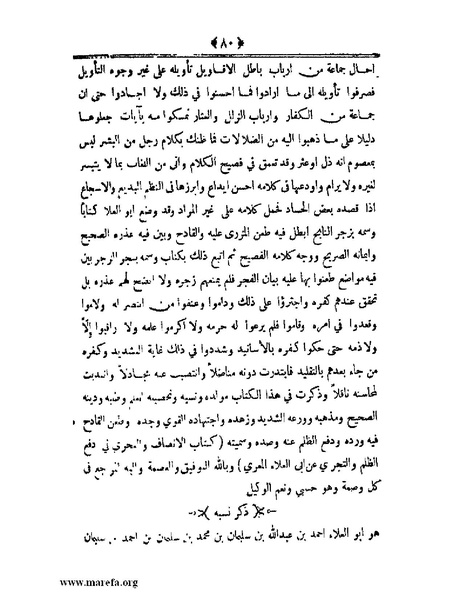 ﴿ ٨٠ ﴾
احتال جماعة من ارباب باطل الاقاويل تأويله على غير وجوه التأويل
فصرفوا تأويله الى ما ارادوا فما احسنوا في ذلك ولا اجادوا حتى ان
جماعة من الكفار وارباب الزلل والعثار تمسكوا منه بآيات جعلوها
دليلا على ما ذهبوا اليه من الضلالات فما ظنك بكلام رجل من البشر ليس
بمعصوم انه زل اوعثر وقد تعمق في فصيح الكلام واتى من اللغات بما لا يتيسر
لغيره ولا يرام واودعها في كلامه احسن ايداع وابرزها في النظم البديع والاسجاع
اذا قصده بعض الحساد فحمل كلامه على غير المراد وقد وضع ابو العلا كتابًا
وسمه بزجر النابح ابطل فيه طعن المزرى عليه والقادح وبين فيه عذره الصحيح
وايمانه الصريح ووجه كلامه الفصيح ثم اتبع ذلك بكتاب وسمه بنجر الزجر بين
فيه مواضع طعنوا بها عليه بيان الفجر فلم يمنعهم زجره ولا اتضح لهم عذره بل
تحقق عندهم كفره واجترؤا على ذلك وداموا وعنفوا من انتصر له ولاموا
وقعدوا في امره وقاموا فلم يرعوا له حرمه ولا اكرموا علمه ولا راقبوا إلّاً
ولا ذمه حتى حكوا كفره بالأسانيد وشددوا في ذلك غاية التشديد وكفره
من جاء بعدهم بالتقليد فابتدرت دونه مناضلاً وانتصبت عنه مجادلاً وانتدبت
لمحاسنه ناقلاً وذكرت في هذا الكتاب مولده ونسبه وتحصيله للعلم وطلبه ودينه
الصحيح ومذهبه وورعه الشديد وزهده واجتهاده القوي وجده وطعن القادح
فيه ورده ودفع الظلم عنه وصده وسميته ( كتاب الانصاف والتحري في دفع
الظلم والتجري عن ابى العلاء المعري ) وبالله التوفيق والعصمة واليه المرجع في
كل وصمة وهو حسبي ونعم الوكيل
﴿ ذكر نسبه ﴾
هو ابو العلاء احمد بن عبدالله بن سليمان بن محمد بن سليمان بن احمد بن سليمان
www.marefa.org